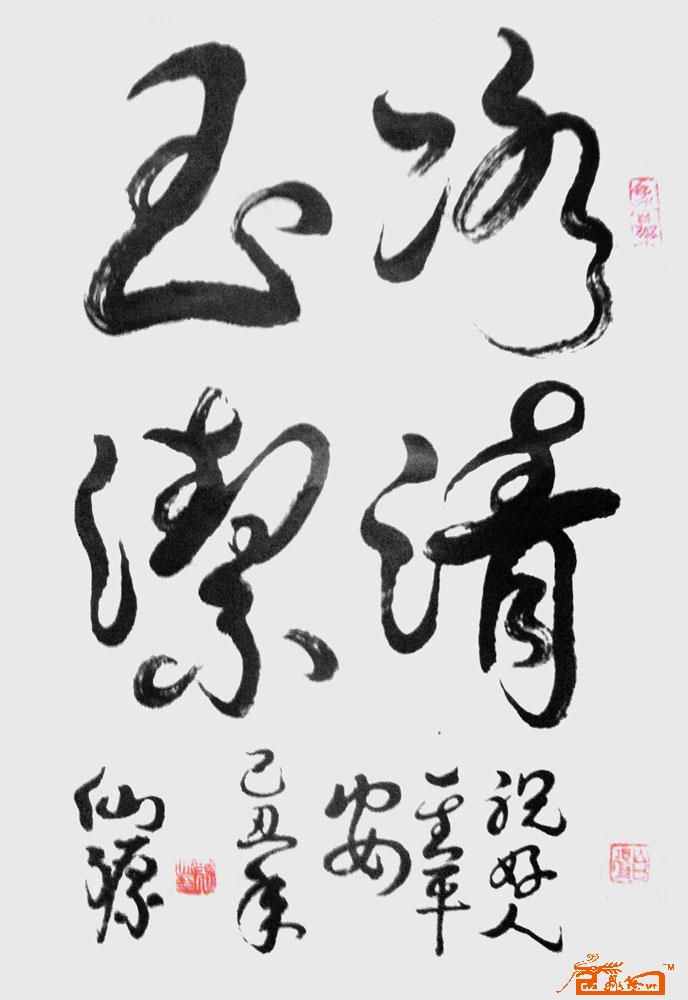 冰清
玉潔
祝好人
一生平
安
己丑年
仙源